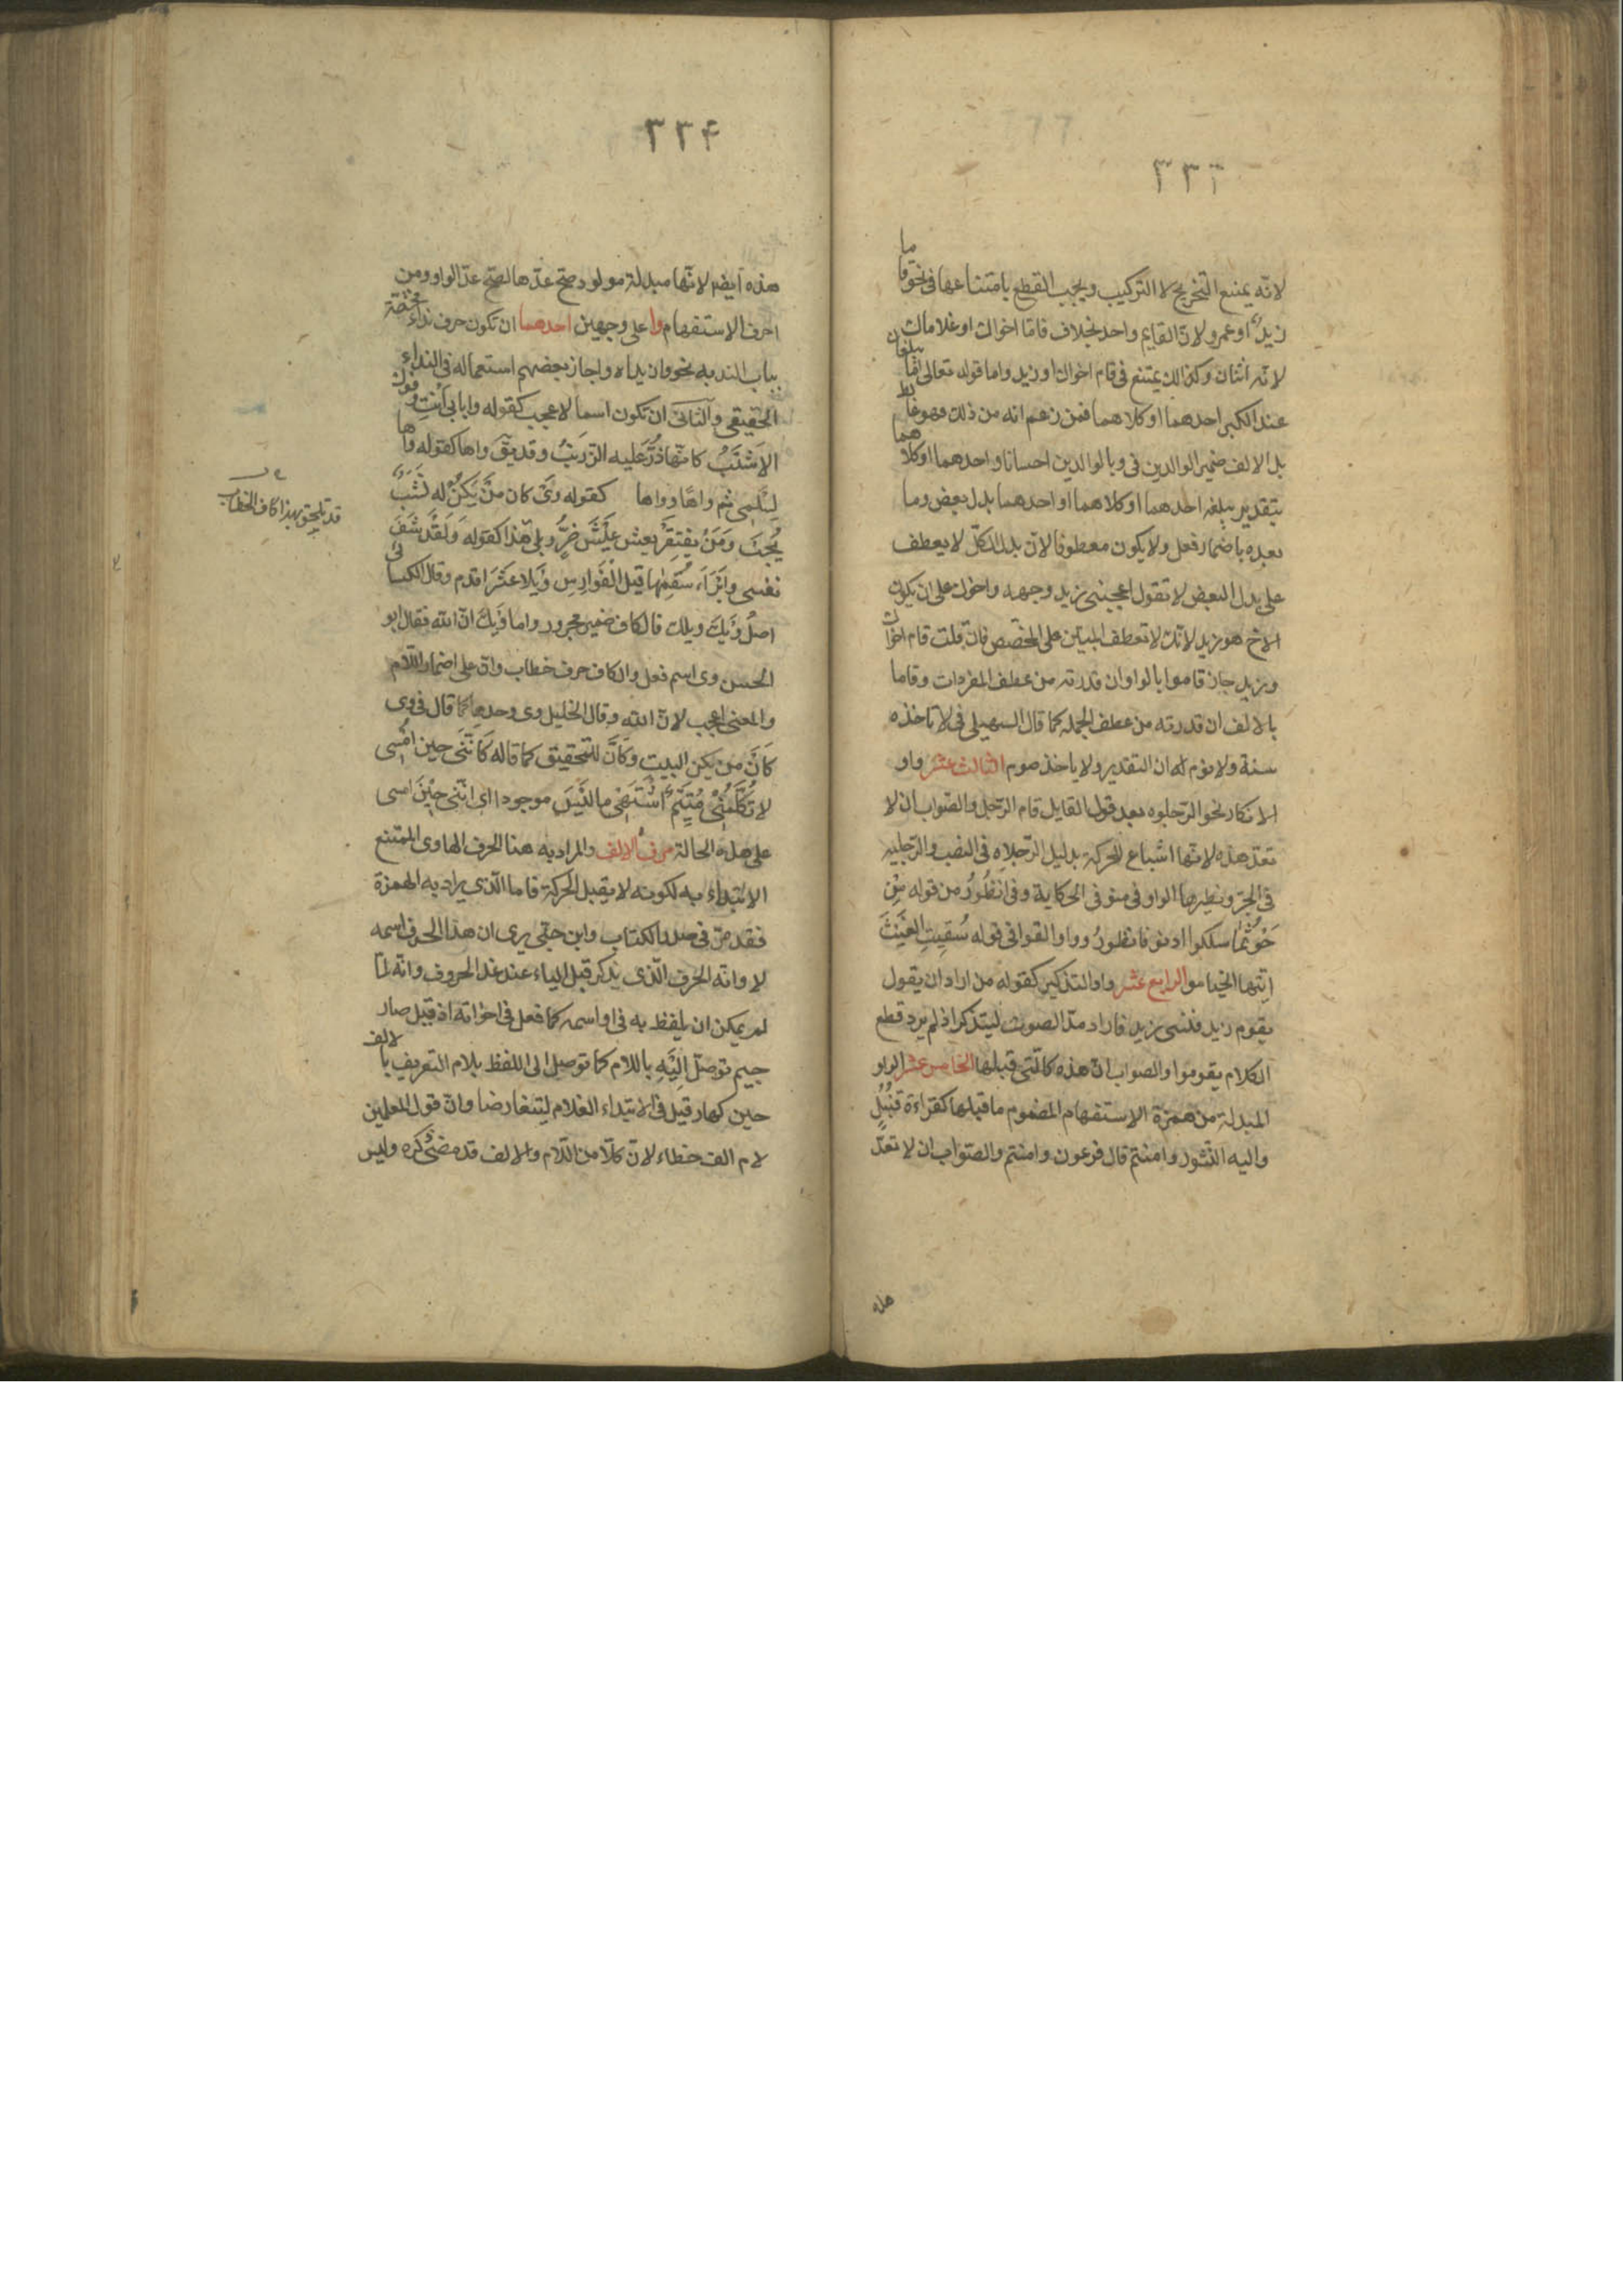 ٣٣٣
لانه يمنع التخريج لا التركيب ويجب القطع بامتناعها في نحو قاما
زيد او عمرو لان القايم واحد بخلاف قاما اخواك او غلاماك
لانه اثنان وكذالك يمتنع في قام اخواك او زيد واما قوله تعالى اما يبلغان
عند الكبر احدهما او كلاهما فمن زعم انه من ذلك فهو غالط
بل الالف ضمير الوالدين في وبالوالدين احسانا واحدهما او كلاهما
بتقدير يبلغه احدهما او كلاهما او احدهما بدل بعض وما
بعده باضمار فعل ولا يكون معطوفا لان بدل الكل لا يعطف
على بدل البعض لا تقول اعجبني زيد وجهه واخوك على ان يكون
الاخ هو زيد لانك لا تعطف المبين على المخصص فان قلت قام اخواك
وزيد جاز قاموا بالواو ان قدرته من عطف المفردات وقاما
بالالف ان قدرته من عطف الجملة كما قال السهيلي في لا تاخذه
سنة ولا نوم له ان التقدير ولا ياخذ صوم الثالث عشر واو
الانكار نحو الرجلوه بعد قول القايل قام الرجل والصواب ان لا
تعد هذه لانها اشباع للحركة بدليل الرجلاه في النصب والرجليه
في الجر ونظيرها الواو في منو في الحكاية وفي انظور من قوله من
حوثما سلكوا ادنو فانظور وواو القوافي في قوله سقيت الغيث
ايتها الخيامو الرابع عشر واو التذكير كقوله من اراد ان يقول
يقوم زيد فنسى زيد فاراد مد الصوت ليتذكر اذ لم يرد قطع
الكلام يقوموا والصواب ان هذه كالتي قبلها الخامس عشر الواو
المبدلة من همزة الاستفهام المضموم ما قبلها كقراءة قنبل
واليه النشور وامنتم قال فرعون وامنتم والصواب ان لا تعد
هذه
٣٣۴
هذه ايضم لانها مبدلة مولو دصح عدها لصح عد الواو ومن
احرف الاستفهام وا على وجهين احدهما ان تكون حرف نداء مختصة
بباب الندبه نحو وان يداه واجاز بعضهم استعماله في النداء
الحقيقي والثاني ان تكون اسما لاعجب كقوله وا بابي انت وفوك
الاشنب كانما ذر عليه الزرنب وقد يق واها كقوله واها
ليلى ثم واها وواها كقوله وى كان من يكن له نشب
يحبب ومن يفتقر يعش عيش ضر وبلى هذا كقوله ولقد شفى
نفسى وابراء سقمها قيل الفوارس ويلا عنتر اقدم وقال الكسائي
اصل ويك ويلك فالكاف ضمير مجرور واما ويك ان الله فقال ابو
الحسن وى اسم فعل والكاف حرف خطاب وان على اضمار اللام
والمعنى اعجب لان الله وقال الخليل وى وحدها كما قال في وى
كان من يكن البيت وكان للتحقيق كما قاله كانني حين امسى
لا تكلمني متيم اشتهى ما ليس موجودا اى انني حين امسى
على هذه الحالة حرف الالف والمراد به هنا الحرف الهاوى الممتنع
الابتداء به لكونه لا يقبل الحركة فاما الذى يراد به الهمزة
فقد مر في صدر الكتاب وابن جنى يرى ان هذا الحرف اسمه
لا وانه الحرف الذى يذكر قبل الياء عند عد الحروف وانه لما
لم يمكن ان يلفظ به في اول اسمه كما فعل في اخواته اذ قيل صاد
جيم توصل اليه باللام كما توصل الى اللفظ بلام التعريف بالالف
حين كهار قيل في الابتداء الغلام ليتغارضا وان قول المعلمين
لام الف خطاء لان كلا من اللام والالف قد مضى ذكره وليس
قد تلحق بهذا كاف الخطاب